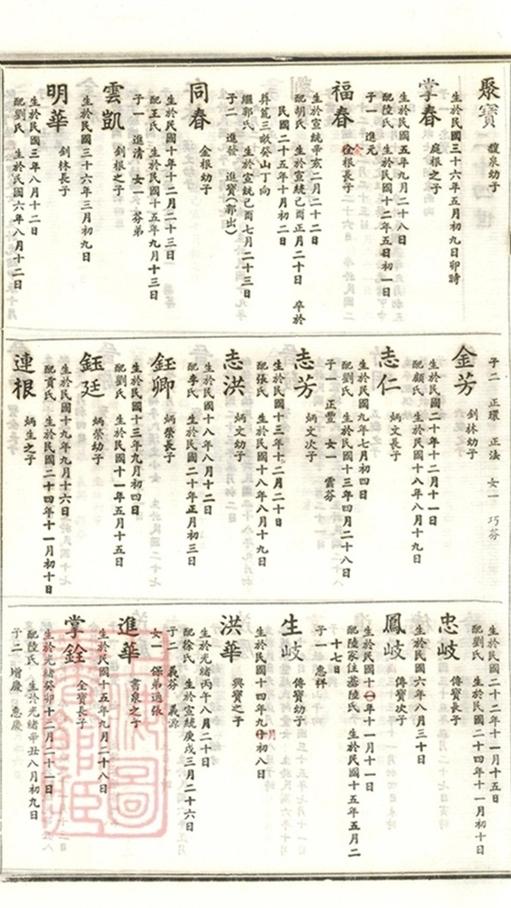 聚寶 馥泉幼子
生於民國三十六年五月初九日卯時
掌春 庭根之子
生於民國五年九月二十八日
配陸氏 生於民國十二年五日初一日
子一 進元
福春 金根長子
生於宣統辛亥二月二十二日
配胡氏 生於宣統己酉正月二十日 卒於
民國二十五年十月初二日
葬荒三畝癸山丁向
繼郭氏 生於宣統己酉七月二十三日
子二 進發 進寶(郭出)
同春 金根幼子
生於民國十年十二月二十三日
配王氏 生於民國十五年九月十三日
子一 進清 女一 芬弟
雲凱 釗根之子
生於民國三十六年三月初九日
明華 釗林長子
生於民國三年八月十二日
配劉氏 生於民國六年八月十二日
子二 正環 正法 女一 巧芬
金芳 釗林幼子
生於民國二十年十二月十一日
配顧氏 生於民國十八年八月十九日
志仁 炳文長子
生於民國九年七月初四日
配劉氏 生於民國十三年四月二十八日
子一 正豐 女一 雪芬
志芳 炳文次子
生於民國十三年十二月二十日
配張氏 生於民國十八年八月十九日
志洪 炳文幼子
生於民國十八年八月十二日
配李氏 生於民國二十年正月初三日
鈺卿 炳榮長子
生於民國十三年九月初四日
配劉氏 生於民國十一年五月十五日
鈺廷 炳榮幼子
生於民國十九年九月十六日
配黃氏 生於民國二十四年十一月初十日
連根 炳生之子
生於民國二十二年十一月十五日
配劉氏 生於民國二十四年十一月初十日
忠岐 傳寶長子
生於民國六年八月三十日
鳳岐 傳寶次子
生於民國十一年十一月十一日
配陸家註蓁陸氏 生於民國十五年五月二
十七日
子一 惠祥
生岐 傳寶幼子
生於民國十四年九月初八日
洪華 興寶之子
生於光緒丙午八月二十日
配徐氏 生於宣統庚戌三月二十六日
子二 義芬 義源
女一 保弟適張
進華 書泉之子
生於民國十五年九月二十八日
掌銓 金寶長子
生於光緒癸卯十二月二十一日
配陸氏 生於光緒辛丑八月初九日
子二 增慶 惠慶